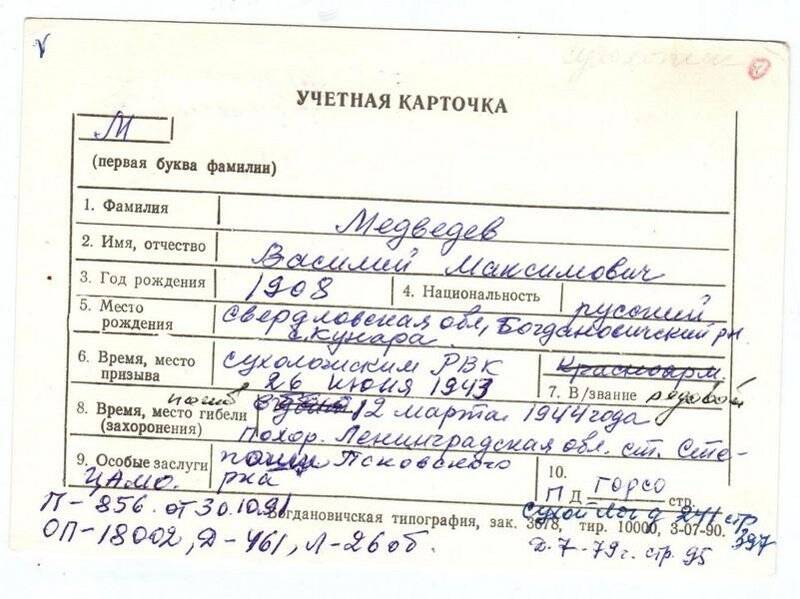 УЧЕТНАЯ КАРТОЧКА
М
(первая буква фамилии)
1. Фамилия Медведев
2. Имя, отчество Василий Максимович
3. Год рождения 1908 4. Национальность русский
5. Место рождения Свердловская обл, Богдановичский рн.
с. Кунара.
6. Время, место призыва Сухоложским РВК
26 июня 1943
Красноарм.
7. В/звание рядовой
погиб
8. Время, место гибели (захоронения) 12 марта 1944 года
Похор. Ленинградская обл. ст. Сте-
9. Особые заслуги Псковского
рка
10.
П Д ГОРСО стр.
ЦАМО.
П-856. от 30.10.91 Сухой Лог д 241 стр 397
Богдановичская типография, зак. 3678, тир. 10000, 3-07-90.
ОП-18002, Д-461, Л-26 об. Д. 7-79 г. стр. 95